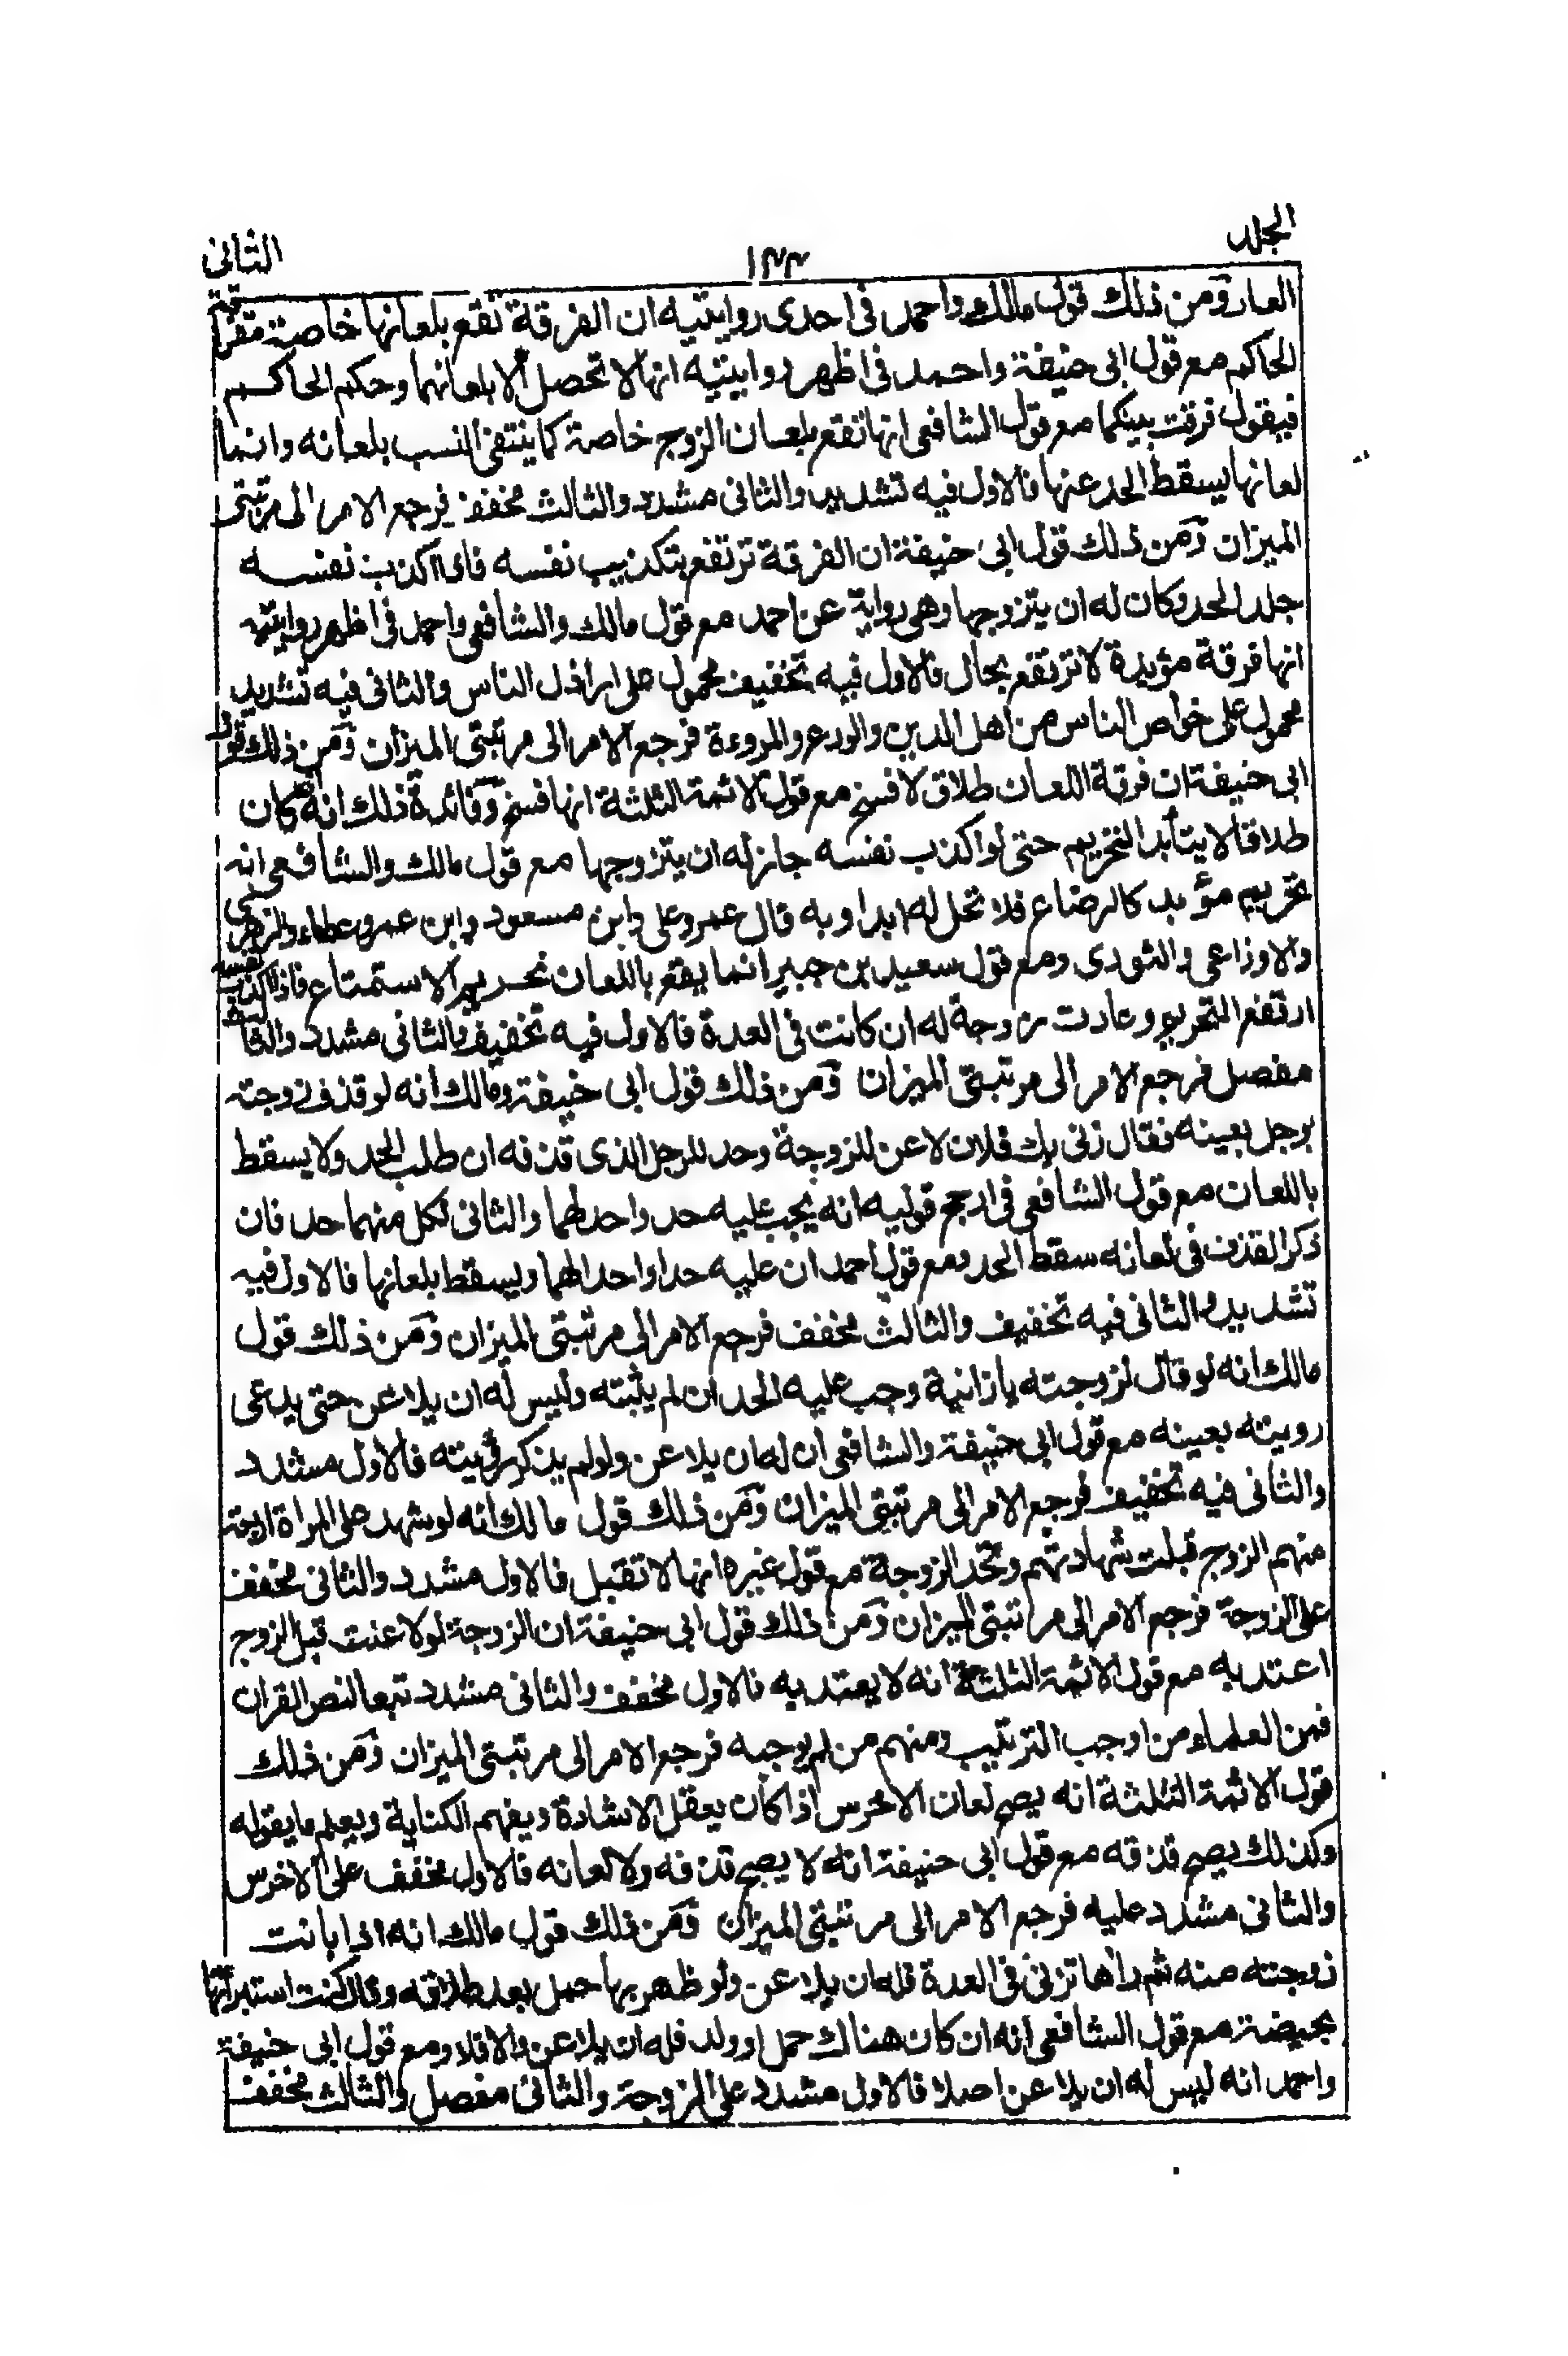 الجلد ١٣٣ الثانى
العار ومن ذلك قول مالك واحمد فى احدى روايتيه ان الفرقة تقع بلعانها خاصة
الحاكم مع قول ابى حنيفة واحمد فى اظهر روايتيه انها لا تحصل الا بلعانهما وحكم الحاكم
فيقول فرقت بينكما مع قول الشافعى انها تقع بلعان الزوج خاصة كما ينتفى النسب بلعانه وانما
لعانها يسقط الحد عنها فالاول فيه تشديد والثانى مشدد والثالث مخفف فرجع الامر الى مرتبتى
الميزان ومن ذلك قول ابى حنيفة ان الفرقة ترتفع بتكذيب نفسه فاذا اكذب نفسه
جلد الحد وكان له ان يتزوجها وهى رواية عن احمد مع قول مالك والشافعى واحمد فى اظهر روايتيه
انها فرقة مؤبدة لا ترتفع بحال فالاول فيه تخفيف محمول على اراذل الناس والثانى فيه تشديد
محمول على خواص الناس من اهل الدين والورع والمروءة فرجع الامر الى مرتبتى الميزان ومن ذلك قول
ابى حنيفة ان فرقة اللعان طلاق لا فسخ مع قول الائمة الثلثة انها فسخ وفائدة ذلك انه كان
طلاقا لا يتأبد التحريم حتى لو اكذب نفسه جاز له ان يتزوجها مع قول مالك والشافعى انه
تحريم مؤبد كالرضاع فلا تحل له ابدا وبه قال عمر وعلى وابن مسعود وابن عمر وعطاء والزهرى
والاوزاعى والثورى ومع قول سعيد بن جبير انما يقع باللعان تحريم الاستمتاع فاذا اكذب نفسه
ارتفع التحريم وعادت زوجة له ان كانت فى العدة فالاول فيه تخفيف والثانى مشدد والثالث
مفصل فرجع الامر الى مرتبتى الميزان ومن ذلك قول ابى حنيفة ومالك انه لو قذف زوجته
برجل بعينه فقال زنى بك فلان لاعن للزوجة وحد للرجل الذى قذفه ان طلب الحد ولا يسقط
باللعان مع قول الشافعى فى ارجح قوليه انه يجب عليه حد واحد لهما والثانى لكل منهما حد فان
ذكر القذف فى لعانه سقط الحد ومع قول احمد ان عليه حدا واحدا لهما ويسقط بلعانها فالاول فيه
تشديد والثانى فيه تخفيف والثالث مخفف فرجع الامر الى مرتبتى الميزان ومن ذلك قول
مالك انه لو قال لزوجته يا زانية وجب عليه الحد ان لم يثبته وليس له ان يلاعن حتى يدعى
رويته بعينه مع قول ابى حنيفة والشافعى ان له ان يلاعن ولو لم يذكر رؤيته فالاول مشدد
والثانى فيه تخفيف فرجع الامر الى مرتبتى الميزان ومن ذلك قول مالك انه لو شهد على المراة اربعة
منهم الزوج قبلت شهادتهم وتحد الزوجة مع قول غيره انها لا تقبل فالاول مشدد والثانى مخفف
على الزوجة فرجع الامر الى مرتبتى الميزان ومن ذلك قول ابى حنيفة ان الزوجة لو لاعنت قبل الزوج
اعتد به مع قول الائمة الثلثة انه لا يعتد به فالاول مخفف والثانى مشدد تبعا لنص القران
فمن العلماء من اوجب الترتيب ومنهم من لم يوجبه فرجع الامر الى مرتبتى الميزان ومن ذلك
قول الائمة الثلثة انه يصح لعان الاخرس اذا كان يعقل الاشارة ويفهم الكتابة ويعلم ما يقوله
وكذلك يصح قذفه مع قول ابى حنيفة انه لا يصح قذفه ولا لعانه فالاول مخفف على الاخرس
والثانى مشدد عليه فرجع الامر الى مرتبتى الميزان ومن ذلك قول مالك انه اذا بانت
زوجته منه ثم راها تزنى فى العدة فله ان يلاعن ولو ظهر بها حمل بعد طلاقه وقال كنت استبرأتها
بحيضة مع قول الشافعى انه ان كان هناك حمل او ولد فله ان يلاعن والا فلا ومع قول ابى حنيفة
واحمد انه ليس له ان يلاعن اصلا فالاول مشدد على الزوجة والثانى مفصل والثالث مخفف